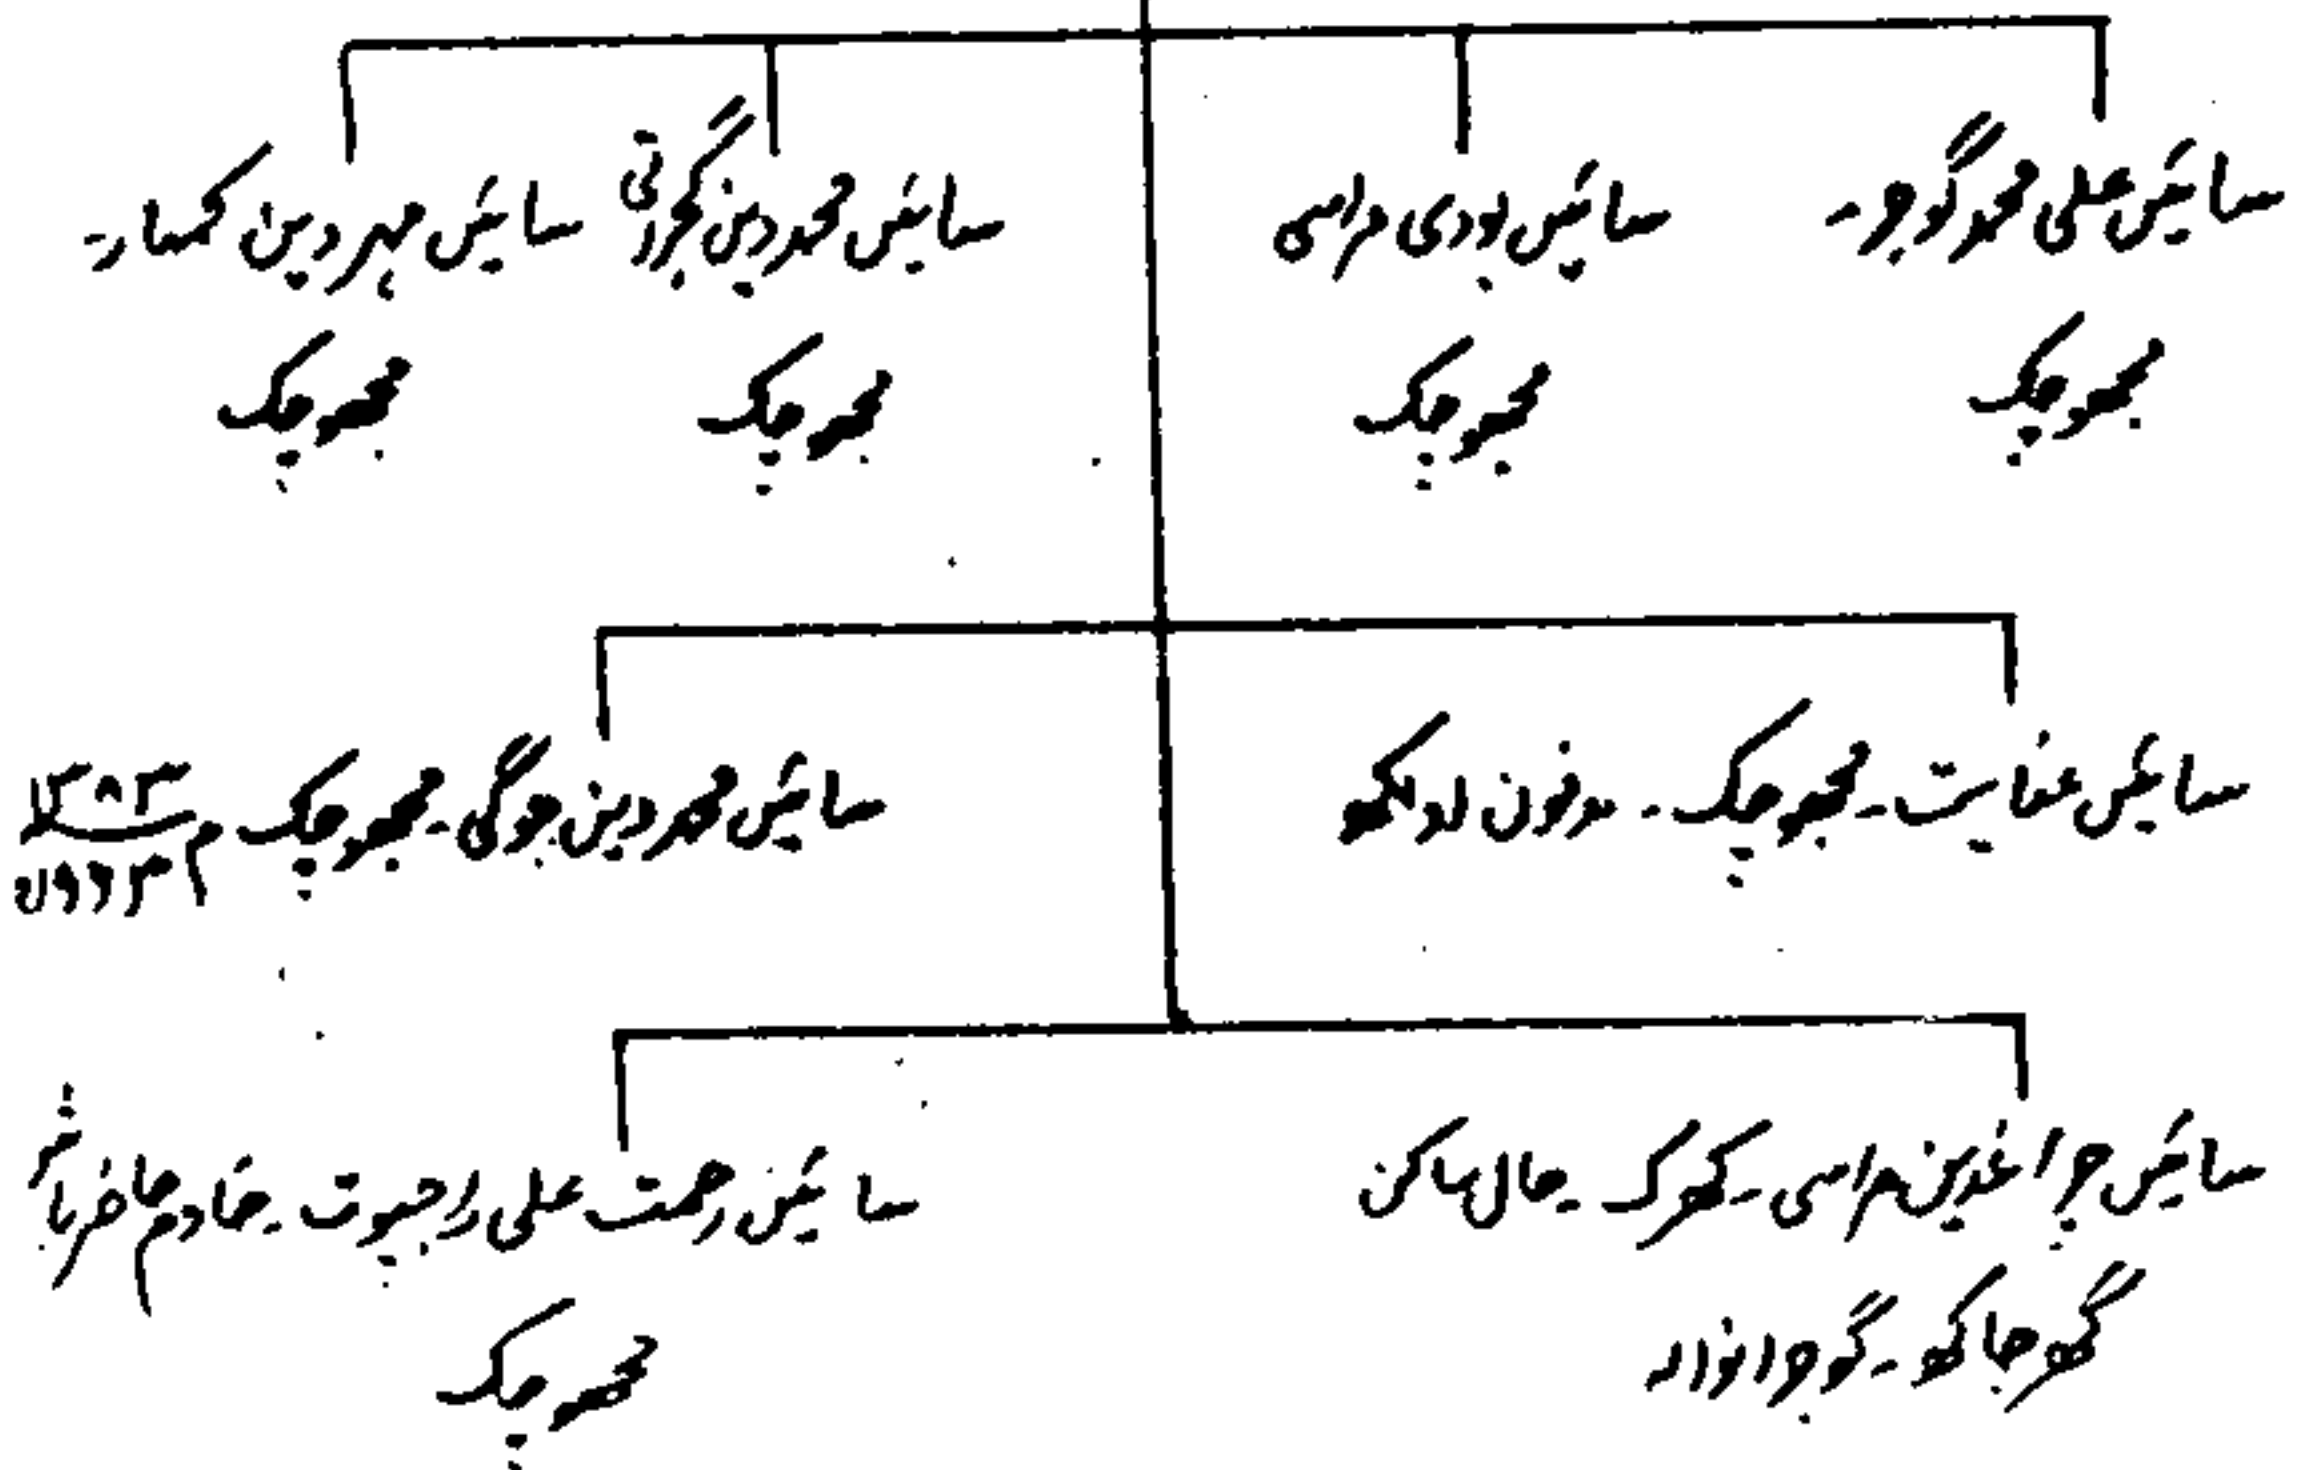 سائیں علی محمد گوجر۔
بھجو چک
سائیں بودی مراسی
بھجو چک
سائیں محمد دین گجراتی
بھجو چک
سائیں مہر دین کمہار۔
بھجو چک
سائیں عنایت۔ بھجو چک۔ مدفون لدویکھو
سائیں محمد دین جوگی۔ بھجو چک م
مردووں
سائیں چراغدین مراسی۔ کھوکر۔ حال ساکن
گھرجاکھ۔ گوجرانوالہ
سائیں رحمت علی راجپوت۔ خادم خاص
بھجو چک